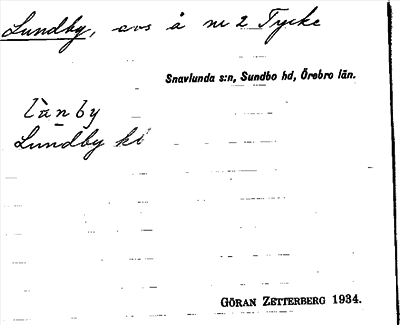 Lundby, avs å nr 2 Tycke
Snavlunda s:n, Sundbo hd, Örebro län.
lànby
Lundby ki
GÖRAN ZETTERBERG 1934.